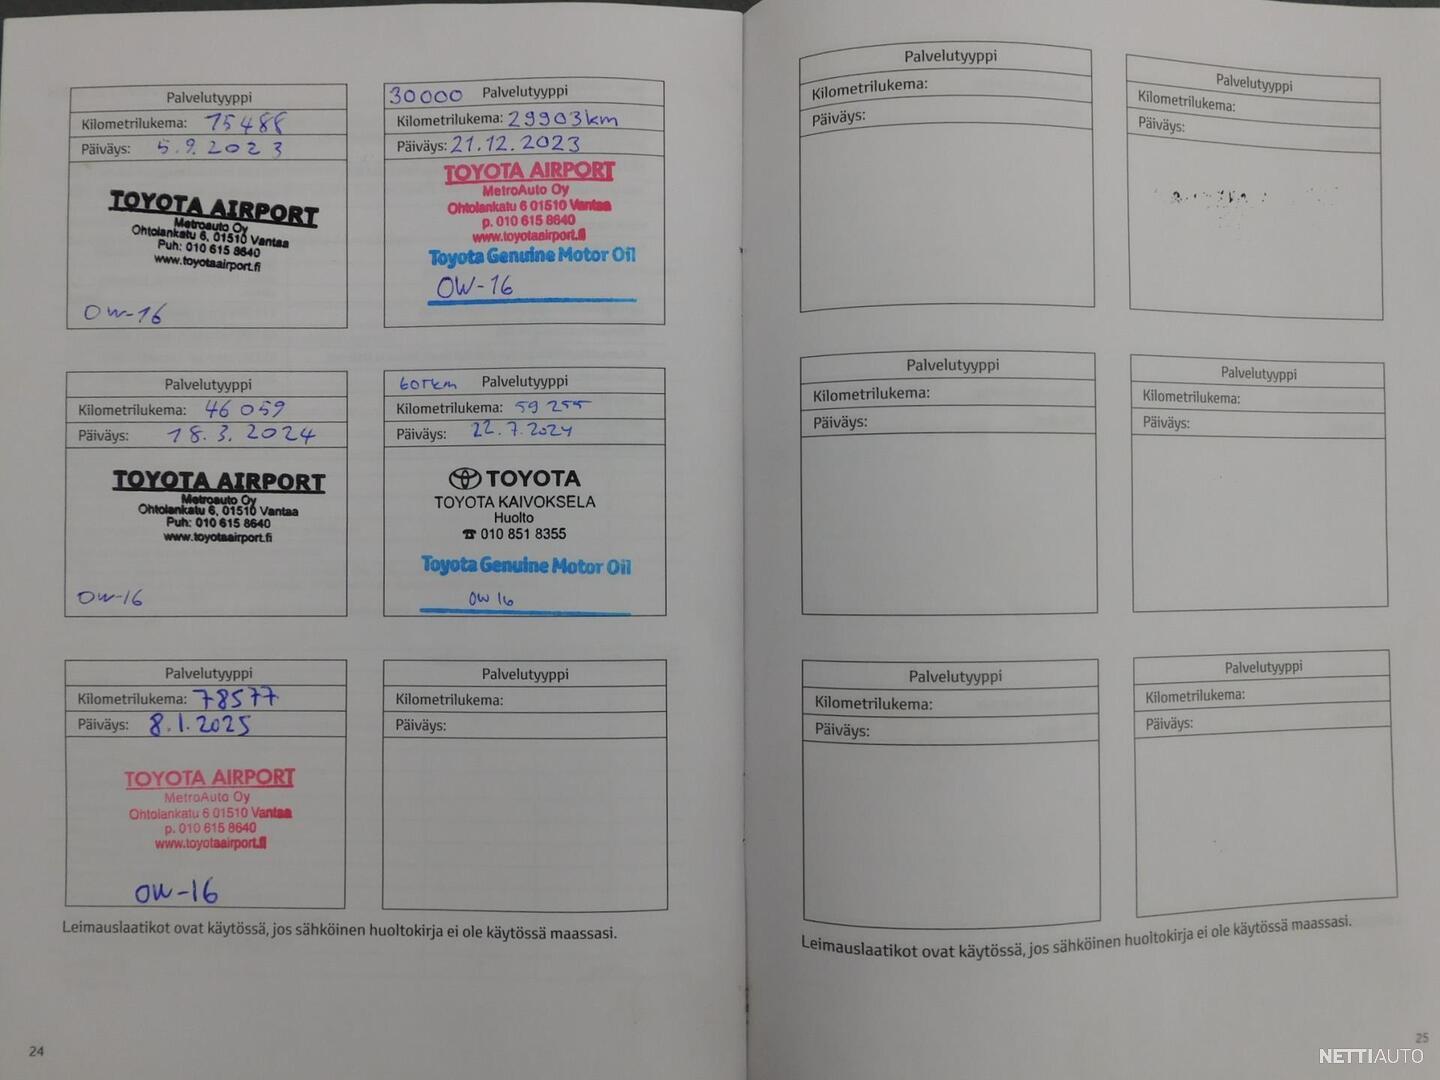 Palvelutyyppi
Kilometrilukema: 15488
Päiväys: 5.9.2023
TOYOTA AIRPORT
Metroauto Oy
Ohtolankatu 6, 01510 Vantaa
Puh: 010 615 8640
www.toyotaairport.fi
OW-16
30000 Palvelutyyppi
Kilometrilukema: 29903km
Päiväys: 21.12.2023
TOYOTA AIRPORT
MetroAuto Oy
Ohtolankatu 6 01510 Vantaa
p. 010 615 8640
www.toyotaairport.fi
Toyota Genuine Motor Oil
OW-16
Palvelutyyppi
Kilometrilukema: 46 059
Päiväys: 18.3.2024
TOYOTA AIRPORT
Metroauto Oy
Ohtolankatu 6, 01510 Vantaa
Puh: 010 615 8640
www.toyotaairport.fi
OW-16
60Tkm Palvelutyyppi
Kilometrilukema: 59 255
Päiväys: 22.7.2024
TOYOTA
TOYOTA KAIVOKSELA
Huolto
☎ 010 851 8355
Toyota Genuine Motor Oil
OW 16
Palvelutyyppi
Kilometrilukema: 78577
Päiväys: 8.1.2025
TOYOTA AIRPORT
MetroAuto Oy
Ohtolankatu 6 01510 Vantaa
p. 010 615 8640
www.toyotaairport.fi
OW-16
Palvelutyyppi
Kilometrilukema:
Päiväys:
Leimauslaatikot ovat käytössä, jos sähköinen huoltokirja ei ole käytössä maassasi.
24
Palvelutyyppi
Kilometrilukema:
Päiväys:
Palvelutyyppi
Kilometrilukema:
Päiväys:
Palvelutyyppi
Kilometrilukema:
Päiväys:
Palvelutyyppi
Kilometrilukema:
Päiväys:
Palvelutyyppi
Kilometrilukema:
Päiväys:
Palvelutyyppi
Kilometrilukema:
Päiväys:
Leimauslaatikot ovat käytössä, jos sähköinen huoltokirja ei ole käytössä maassasi.
25
NETTIAUTO